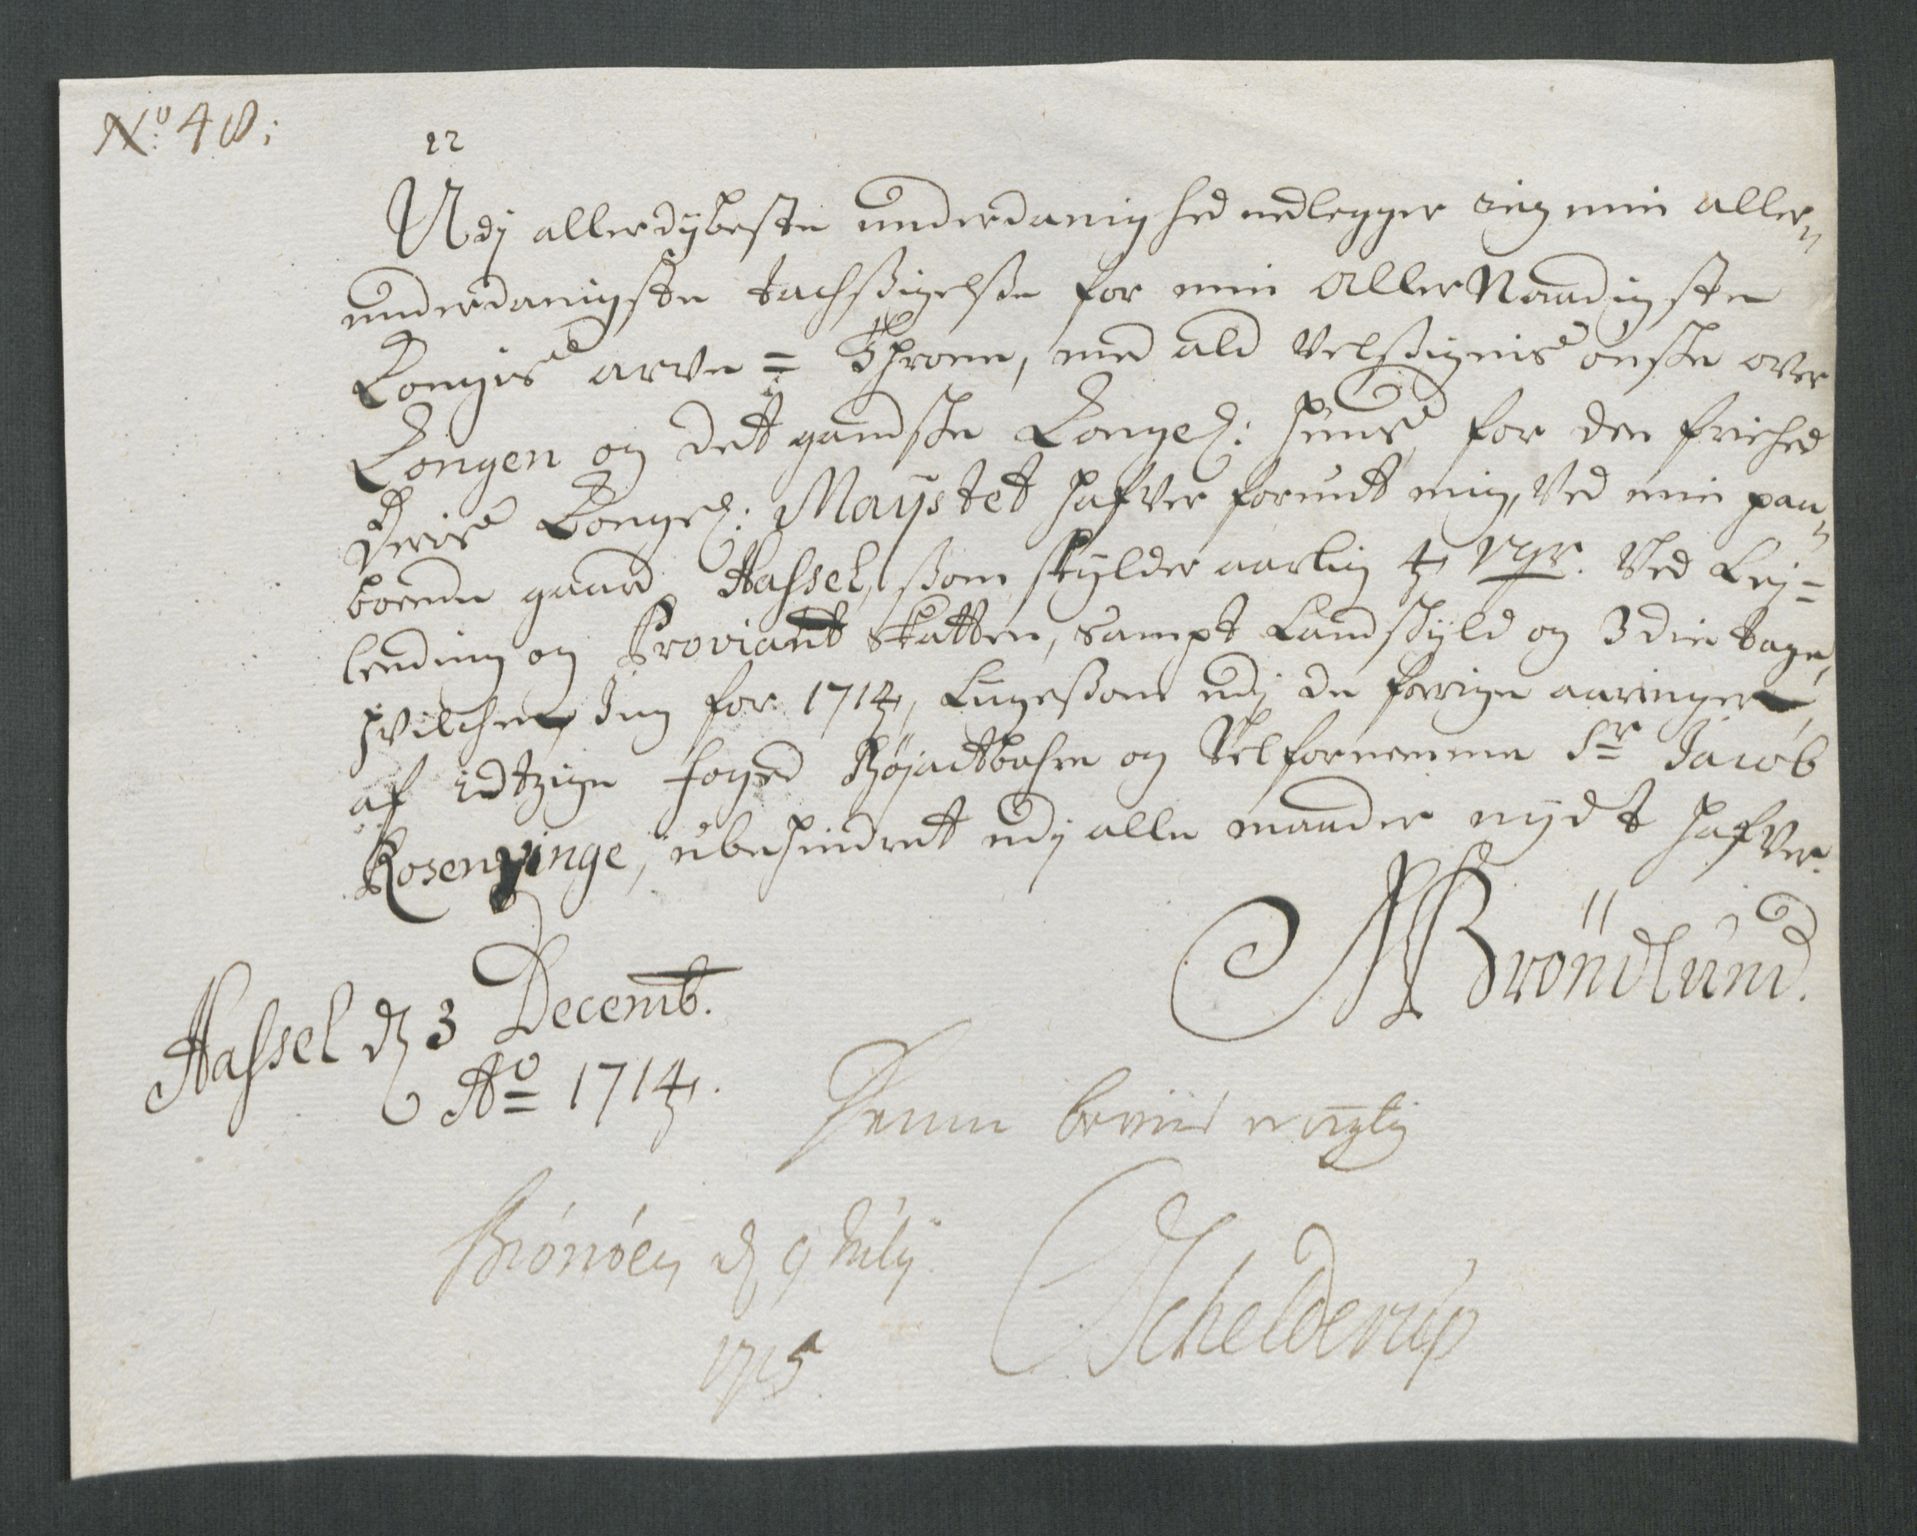 No: 48;
12
Udj allerdybeste underdanighed nedlegger ieg min aller„
underdanigste tachsigelse for min AllerNaadigste
Kongis arve = Throne, med ald Velsignis ønske over
Kongen og det gandske Kongel: Huus, for den friehed
Deris Kongel: Mayestet hafver forundt mig, Ved min paa„
boende gaard Hassel, som skylder aarlig 4 Vgr. Ved Lej=
lending og Proviant skatten, sampt Landskyld og 3die tage,
hvilchen Jeg for 1714, Ligesom udj de forrige aaringer
af idtzige foged Højactbahre og Velfornemme Sr Jacob
Rosenvinge, ubehindret udj alle maader nydt hafver.
Brøndlund.
Hassel d 3 Decemb.
Ao 1714.
Denne beviis er rigtig
Brønøen d 9 July
1715
Schelderup